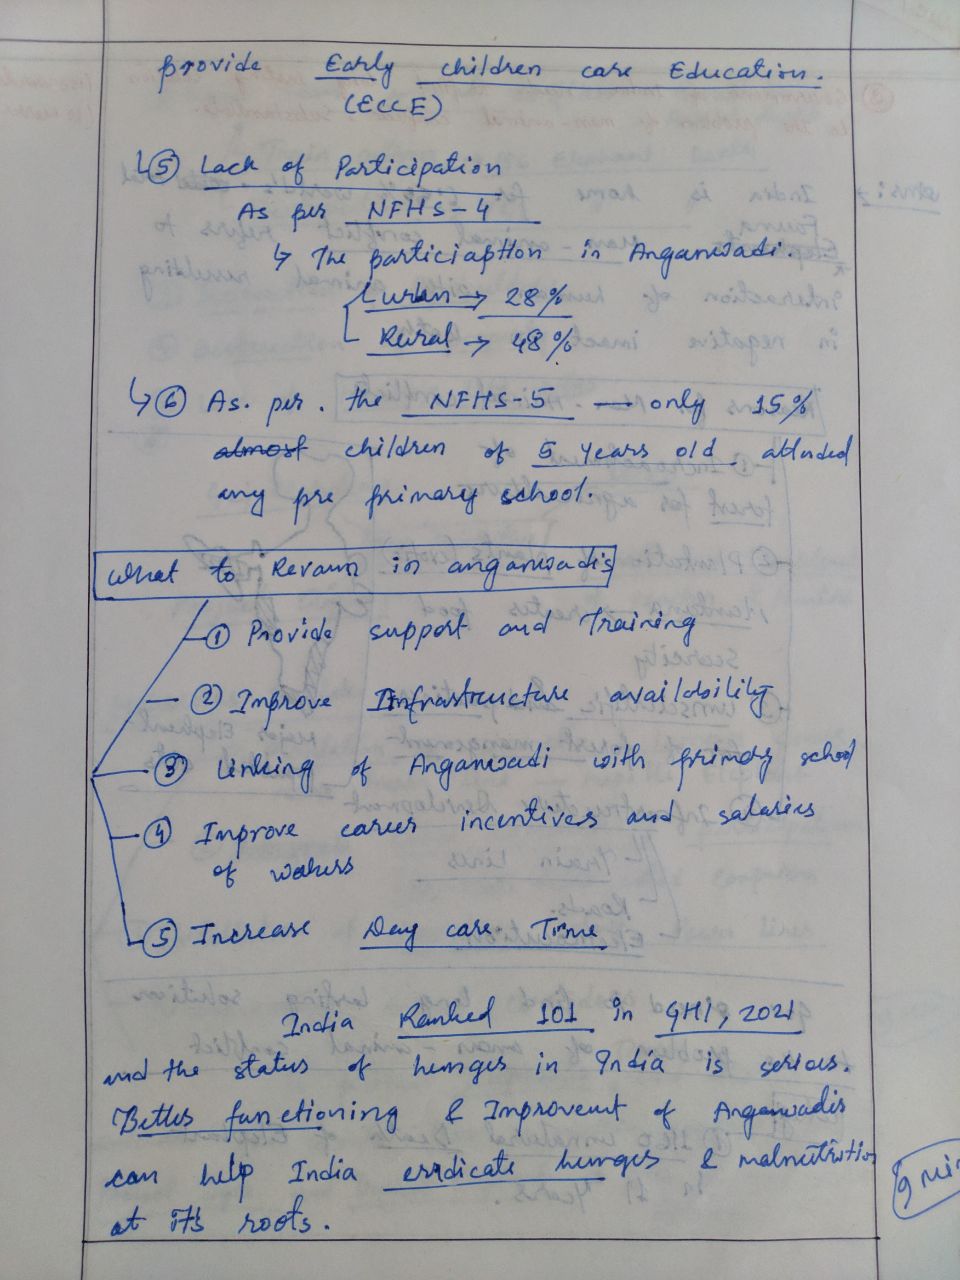 provide Early children care Education.
(ECCE)
↳ ⑤ Lack of Participation
As per NFHS-4
↳ The particiaption in Anganwadi.
urban → 28%
Rural → 48%
↳ ⑥ As. per. the NFHS-5 — only 15%
almost children of 5 years old attended
any pre primary school.
What to Revamp in anganwadis
① Provide support and Training
② Improve Infrastructure availability
③ Linking of Anganwadi with primary school
④ Improve career incentives and salaries
of workers
⑤ Increase Day care Time
India Ranked 101 in GHI, 2021
and the status of hunger in India is serious.
Better functioning & Improvement of Anganwadis
can help India erradicate hunger & malnutrition
at its roots.
9 min